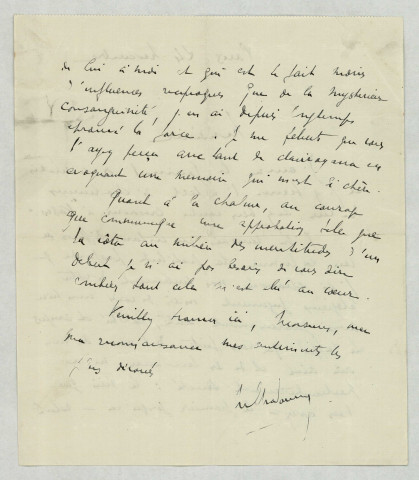 de lui à moi et qui est le fait moins
d'influences réciproques que de la mystérieuse
consanguinité, j'en ai depuis longtemps
éprouvé la force. Je me
l'ayez perçu avec tant de clairvoyance en
évoquant une mémoire qui m'est si chère.
Quant à la chaleur, au courage
que communique une approbation telle que
la vôtre au milieu des incertitudes d'un
début je n'ai pas besoin de vous dire
combien tout cela m'est allé au cœur.
Veuillez trouver ici, Monsieur, avec
ma reconnaissance mes sentiments les
plus dévoués